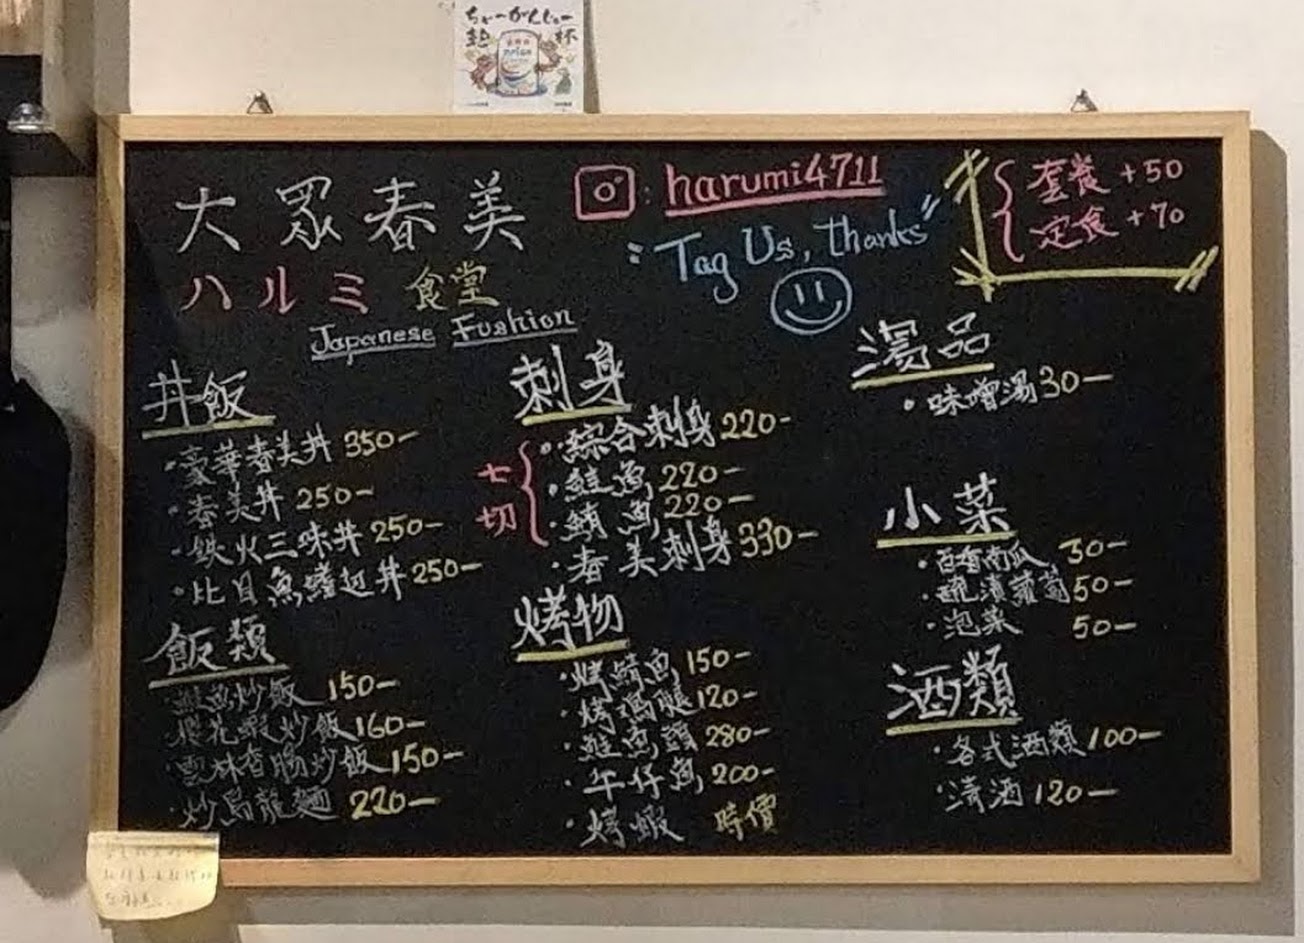 ちゃーがんじゅー
乾杯
大眾春美
ハルミ 食堂
Japanese Fushion
: harumi4711
"Tag Us, thanks"
套餐 +50
定食 +70
丼飯
・豪華春美丼 350-
・春美丼 250-
・鉄火三味丼 250-
・比目魚鰭邊丼 250-
飯類
鮭魚炒飯 150-
櫻花蝦炒飯 160-
雲林香腸炒飯 150-
・炒烏龍麵 220-
刺身
七切
・綜合刺身 220-
・鮭魚 220-
・鮪魚 220-
・春美刺身 330-
烤物
・烤鯖魚 150-
・烤鷄腿 120-
・鮭魚頭 280-
・午仔魚 200-
・烤蝦 時價
湯品
・味噌湯 30-
小菜
・百香南瓜 50-
・疏漬蘿蔔 50-
・泡菜 50-
酒類
・各式酒類 100-
・清酒 120-